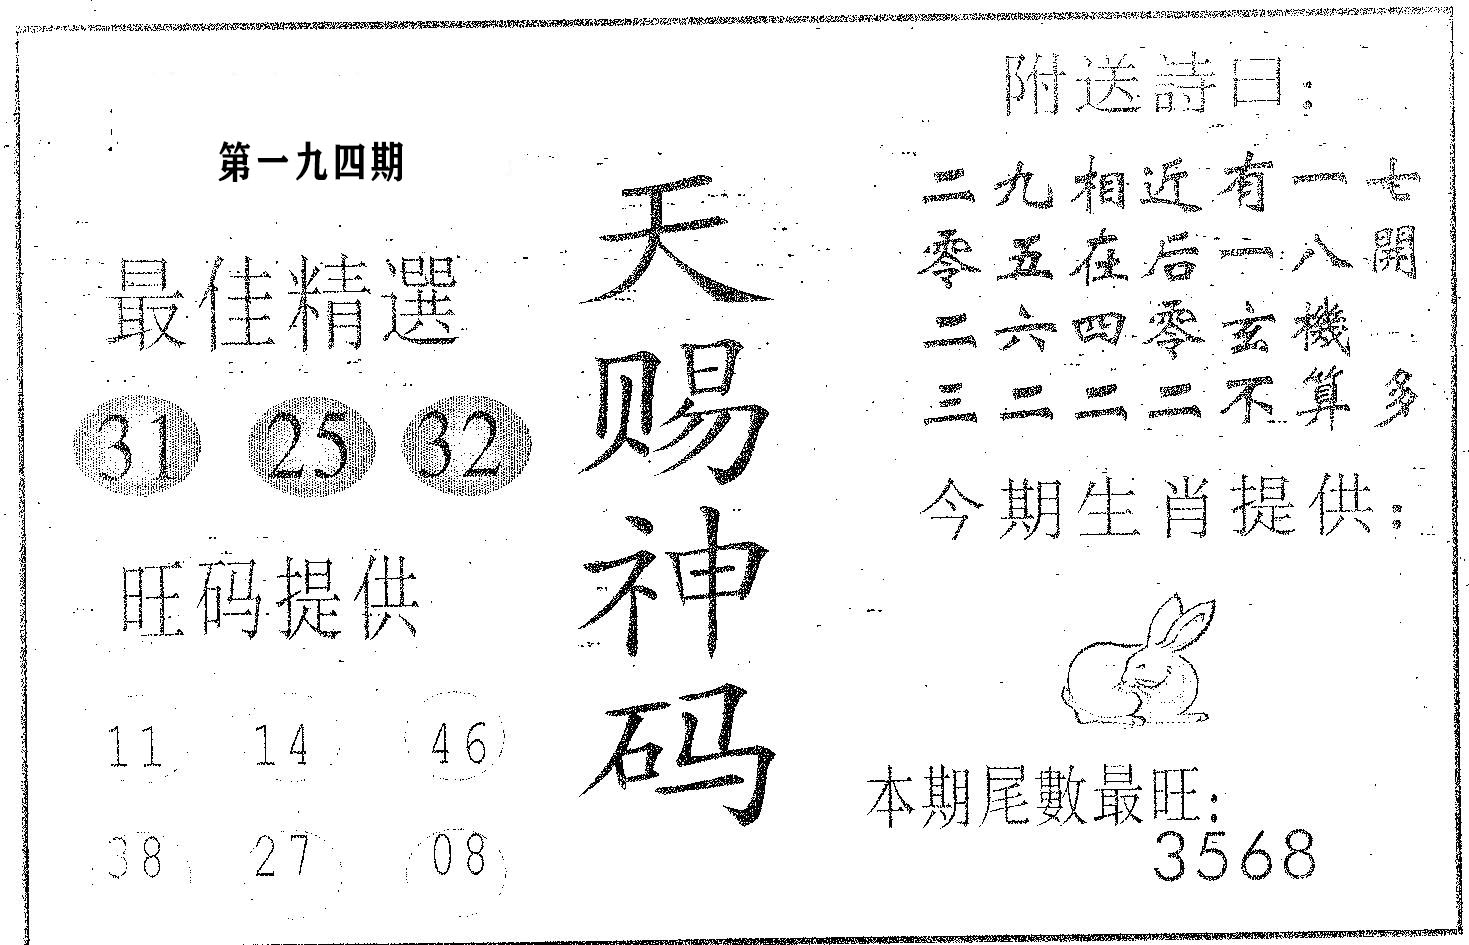 第一九四期
最佳精選
31 25 32
旺码提供
11 14 46
38 27 08
天赐神码
附送詩曰：
二九相近有一七
零五在后一八開
二六四零玄機
三二二二不算多
今期生肖提供：
本期尾數最旺：
3568